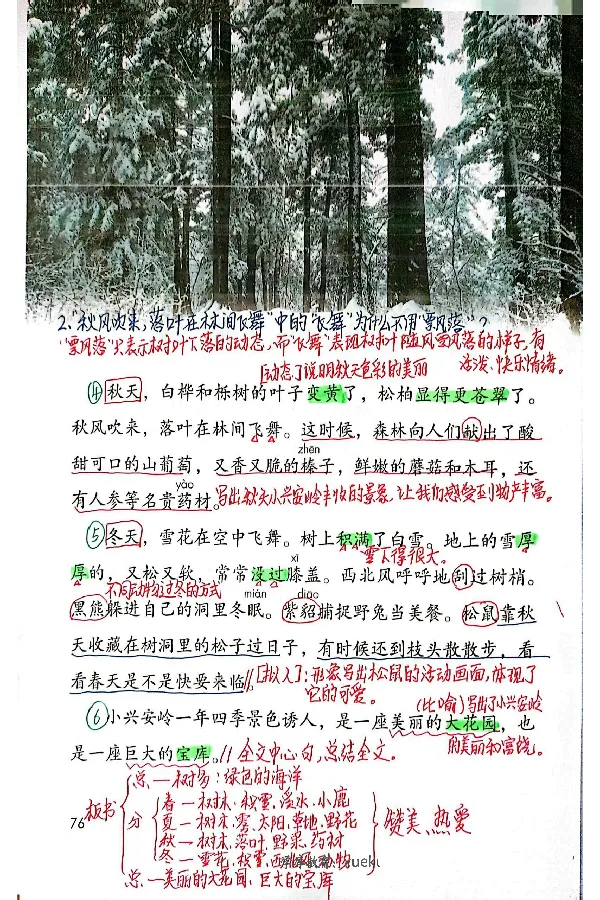 2."秋风吹来,落叶在林间飞舞"中的"飞舞"为什么不用"飘落"?
"飘落"只表示树叶下落的动态,而"飞舞"表现树叶随风飘落的样子,有
动态了说明秋天色彩的美丽
活泼、快乐情绪。
④秋天，白桦和栎树的叶子变黄了，松柏显得更苍翠了。
秋风吹来，落叶在林间飞舞。这时候，森林向人们献出了酸
zhēn
甜可口的山葡萄，又香又脆的榛子，鲜嫩的蘑菇和木耳，还
yào
有人参等名贵药材。写出秋天小兴安岭丰收的景象,让我们感受到物产丰富。
⑤冬天，雪花在空中飞舞。树上积满了白雪。地上的雪厚
雪下得很大。
xī
厚的，又松又软，常常没过膝盖。西北风呼呼地刮过树梢。
不同动物过冬的方式
mián diāo
黑熊躲进自己的洞里冬眠。紫貂捕捉野兔当美餐。松鼠靠秋
天收藏在树洞里的松子过日子，有时候还到枝头散散步，看
看春天是不是快要来临。//[拟人]:形象写出松鼠的活动画面,体现了
它的可爱。
(比喻)写出了小兴安岭
⑥小兴安岭一年四季景色诱人，是一座美丽的大花园，也
的美丽和富饶。
是一座巨大的宝库。//全文中心句,总结全文。
总—树多:绿色的海洋
春—树木、积雪、溪水、小鹿
76 板书 分 夏—树木、雾、太阳、草地、野花 赞美、热爱
秋—树木、落叶、野果、药材
冬—雪花、积雪、西北风、动物
总—美丽的大花园、巨大的宝库